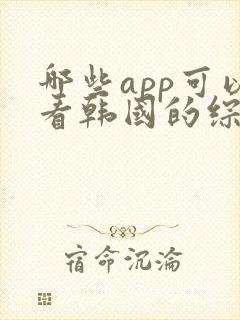 哪些app可以
看韩国的综
宿命沉淪